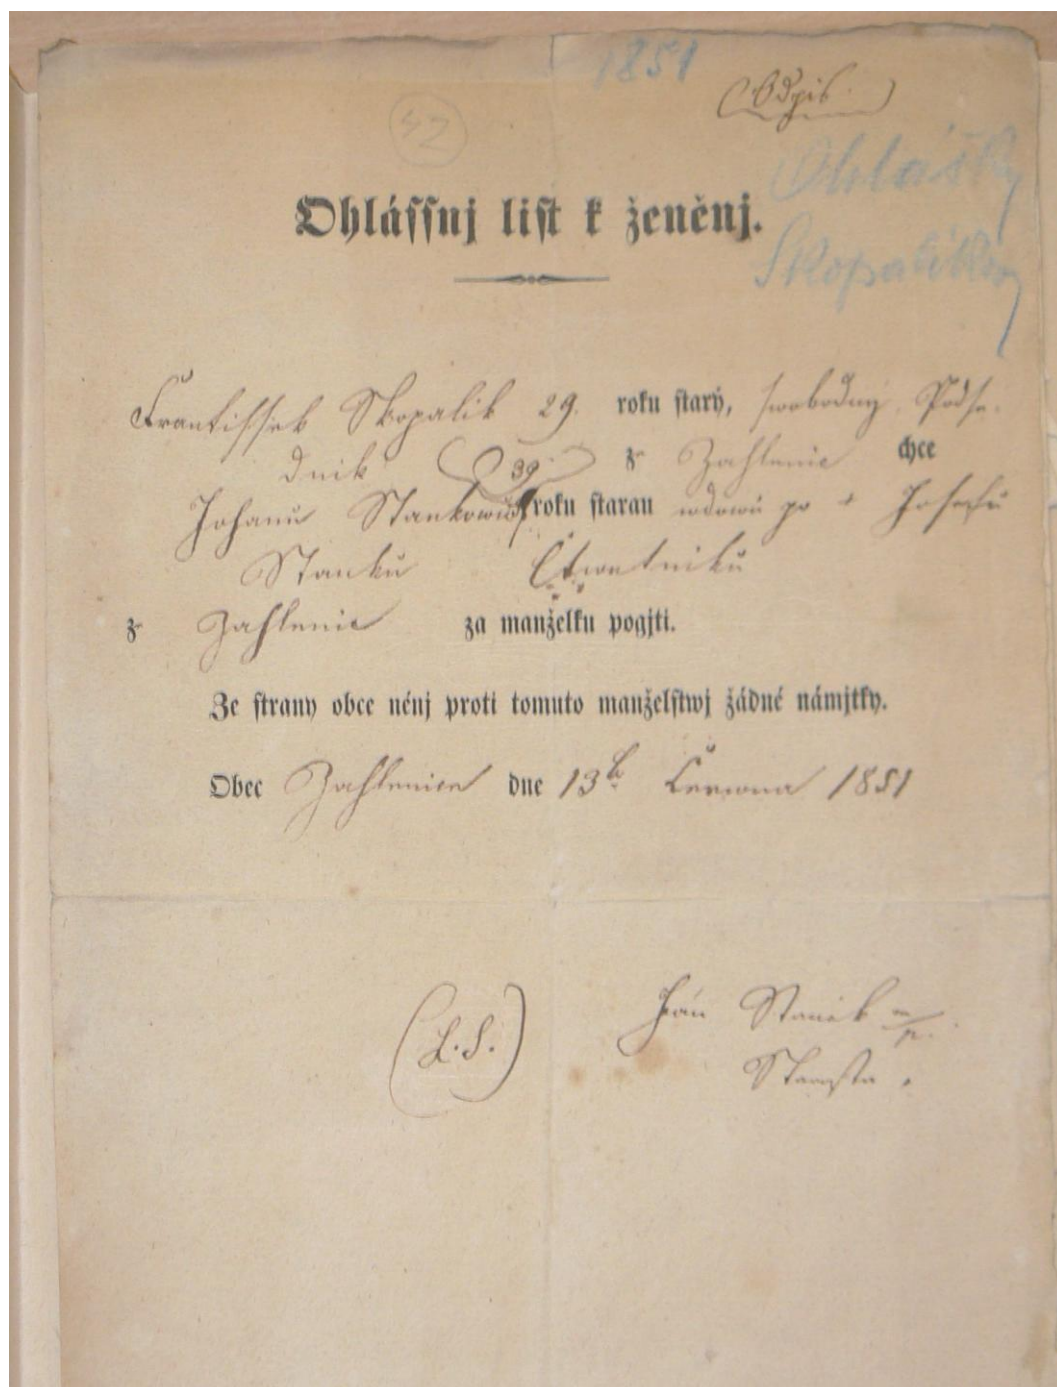 1851
(Odpis.)
42
Ohlášky
Skopalíkovy
Ohlássnj list k ženěnj.
Frantissek Skopalik 29. roku starý, swobodný Podse-
dnik z Zahlenic chce
39
Johanu Stankowu roku starau wdowu po + Josefu
Stanku Čtwrtniku
z Zahlenic za manželku pogjti.
Ze strany obce nénj proti tomuto manželstwj žádné námjtky.
Obec Zahlenice dne 13ho Čerwna 1851
(L.S.)
Ján Stanik m/p.
Starosta.